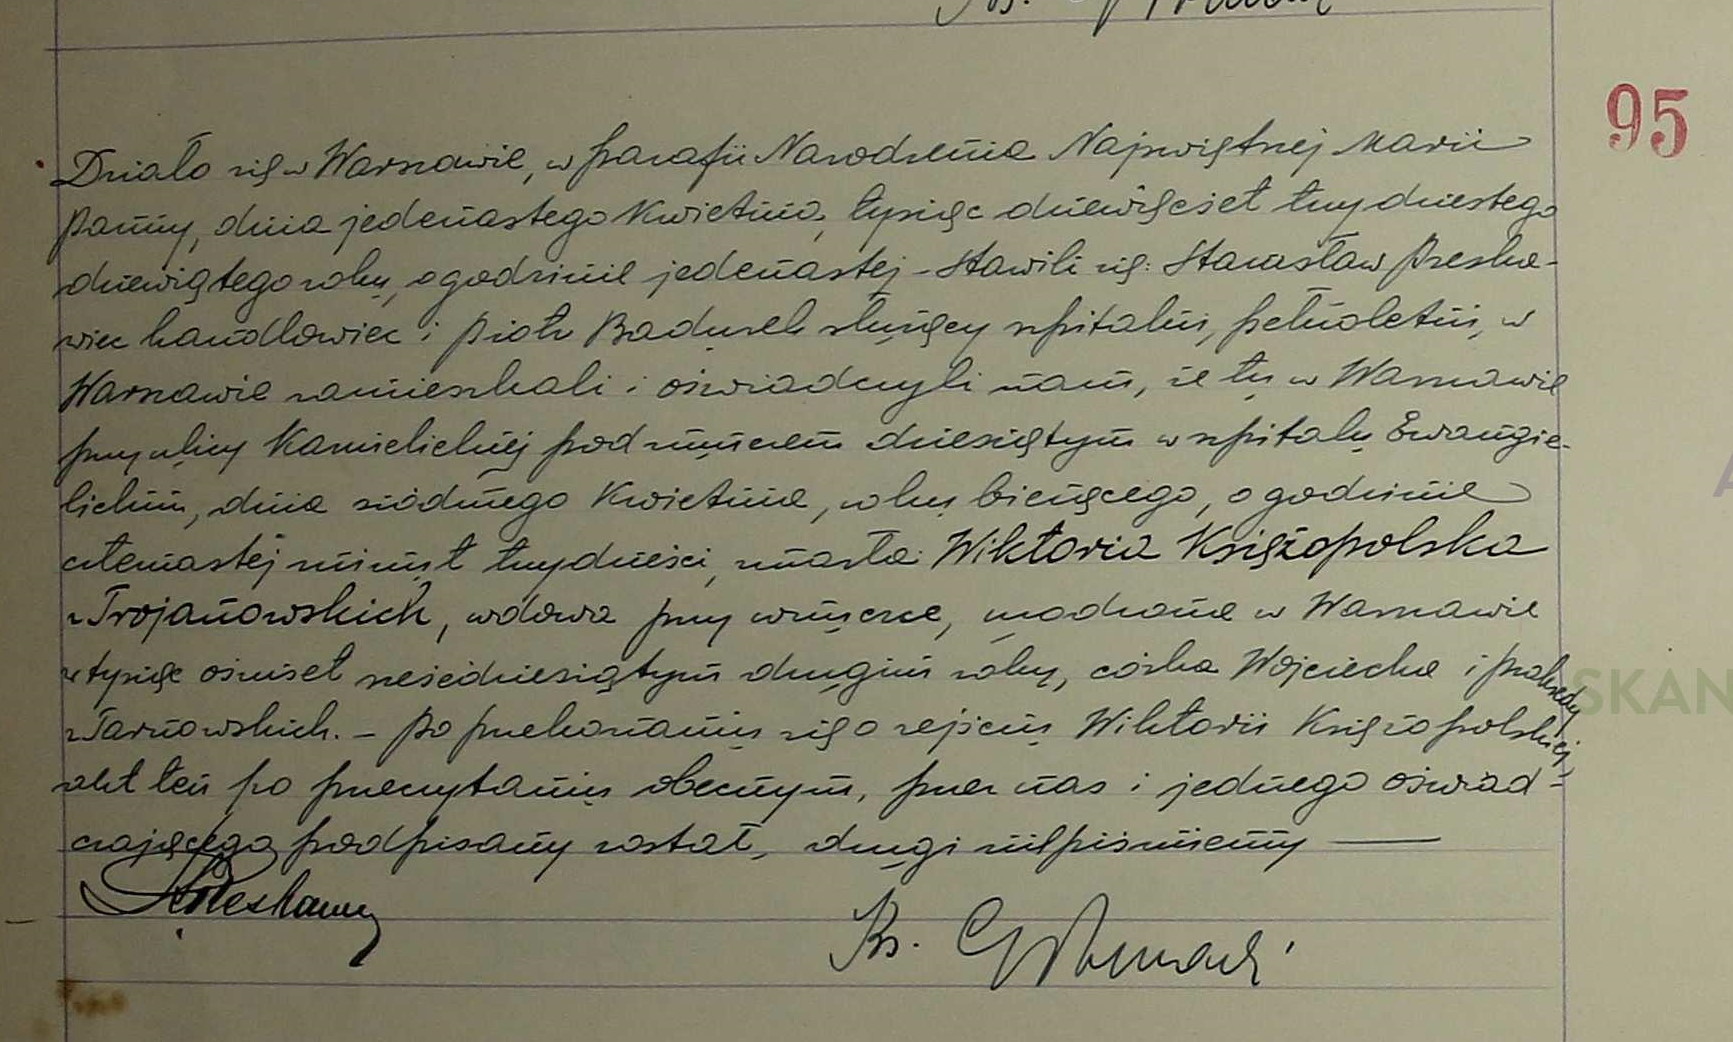 95
Działo się w Warszawie, w parafii Narodzenia Najświętszej Marii
Panny, dnia jedenastego Kwietnia, tysiąc dziewięćset trzydziestego
dziewiątego roku, o godzinie jedenastej – Stawili się: Stanisław
wiec handlowiec i Piotr służący szpitalny, pełnoletni, w
Warszawie zamieszkali i oświadczyli nam, że tu w Warszawie
przy ulicy Karmelickiej pod numerem dziesiątym w szpitalu Ewangie-
lickim, dnia siódmego Kwietnia, roku bieżącego, o godzinie
czternastej minut trzydzieści, zmarła: Wiktoria Księżopolska
z Trojanowskich, wdowa przy wnuczce, urodzona w Warszawie
w tysiąc osiemset sześćdziesiątym drugim roku, córka Wojciecha i Praksedy
z Tarnowskich. – Po przekonaniu się o zejściu Wiktorii Księżopolskiej,
akt ten po przeczytaniu obecnym, przez nas i jednego oświad-
czającego podpisany został, drugi niepiśmienny —
Ks.
SKAN